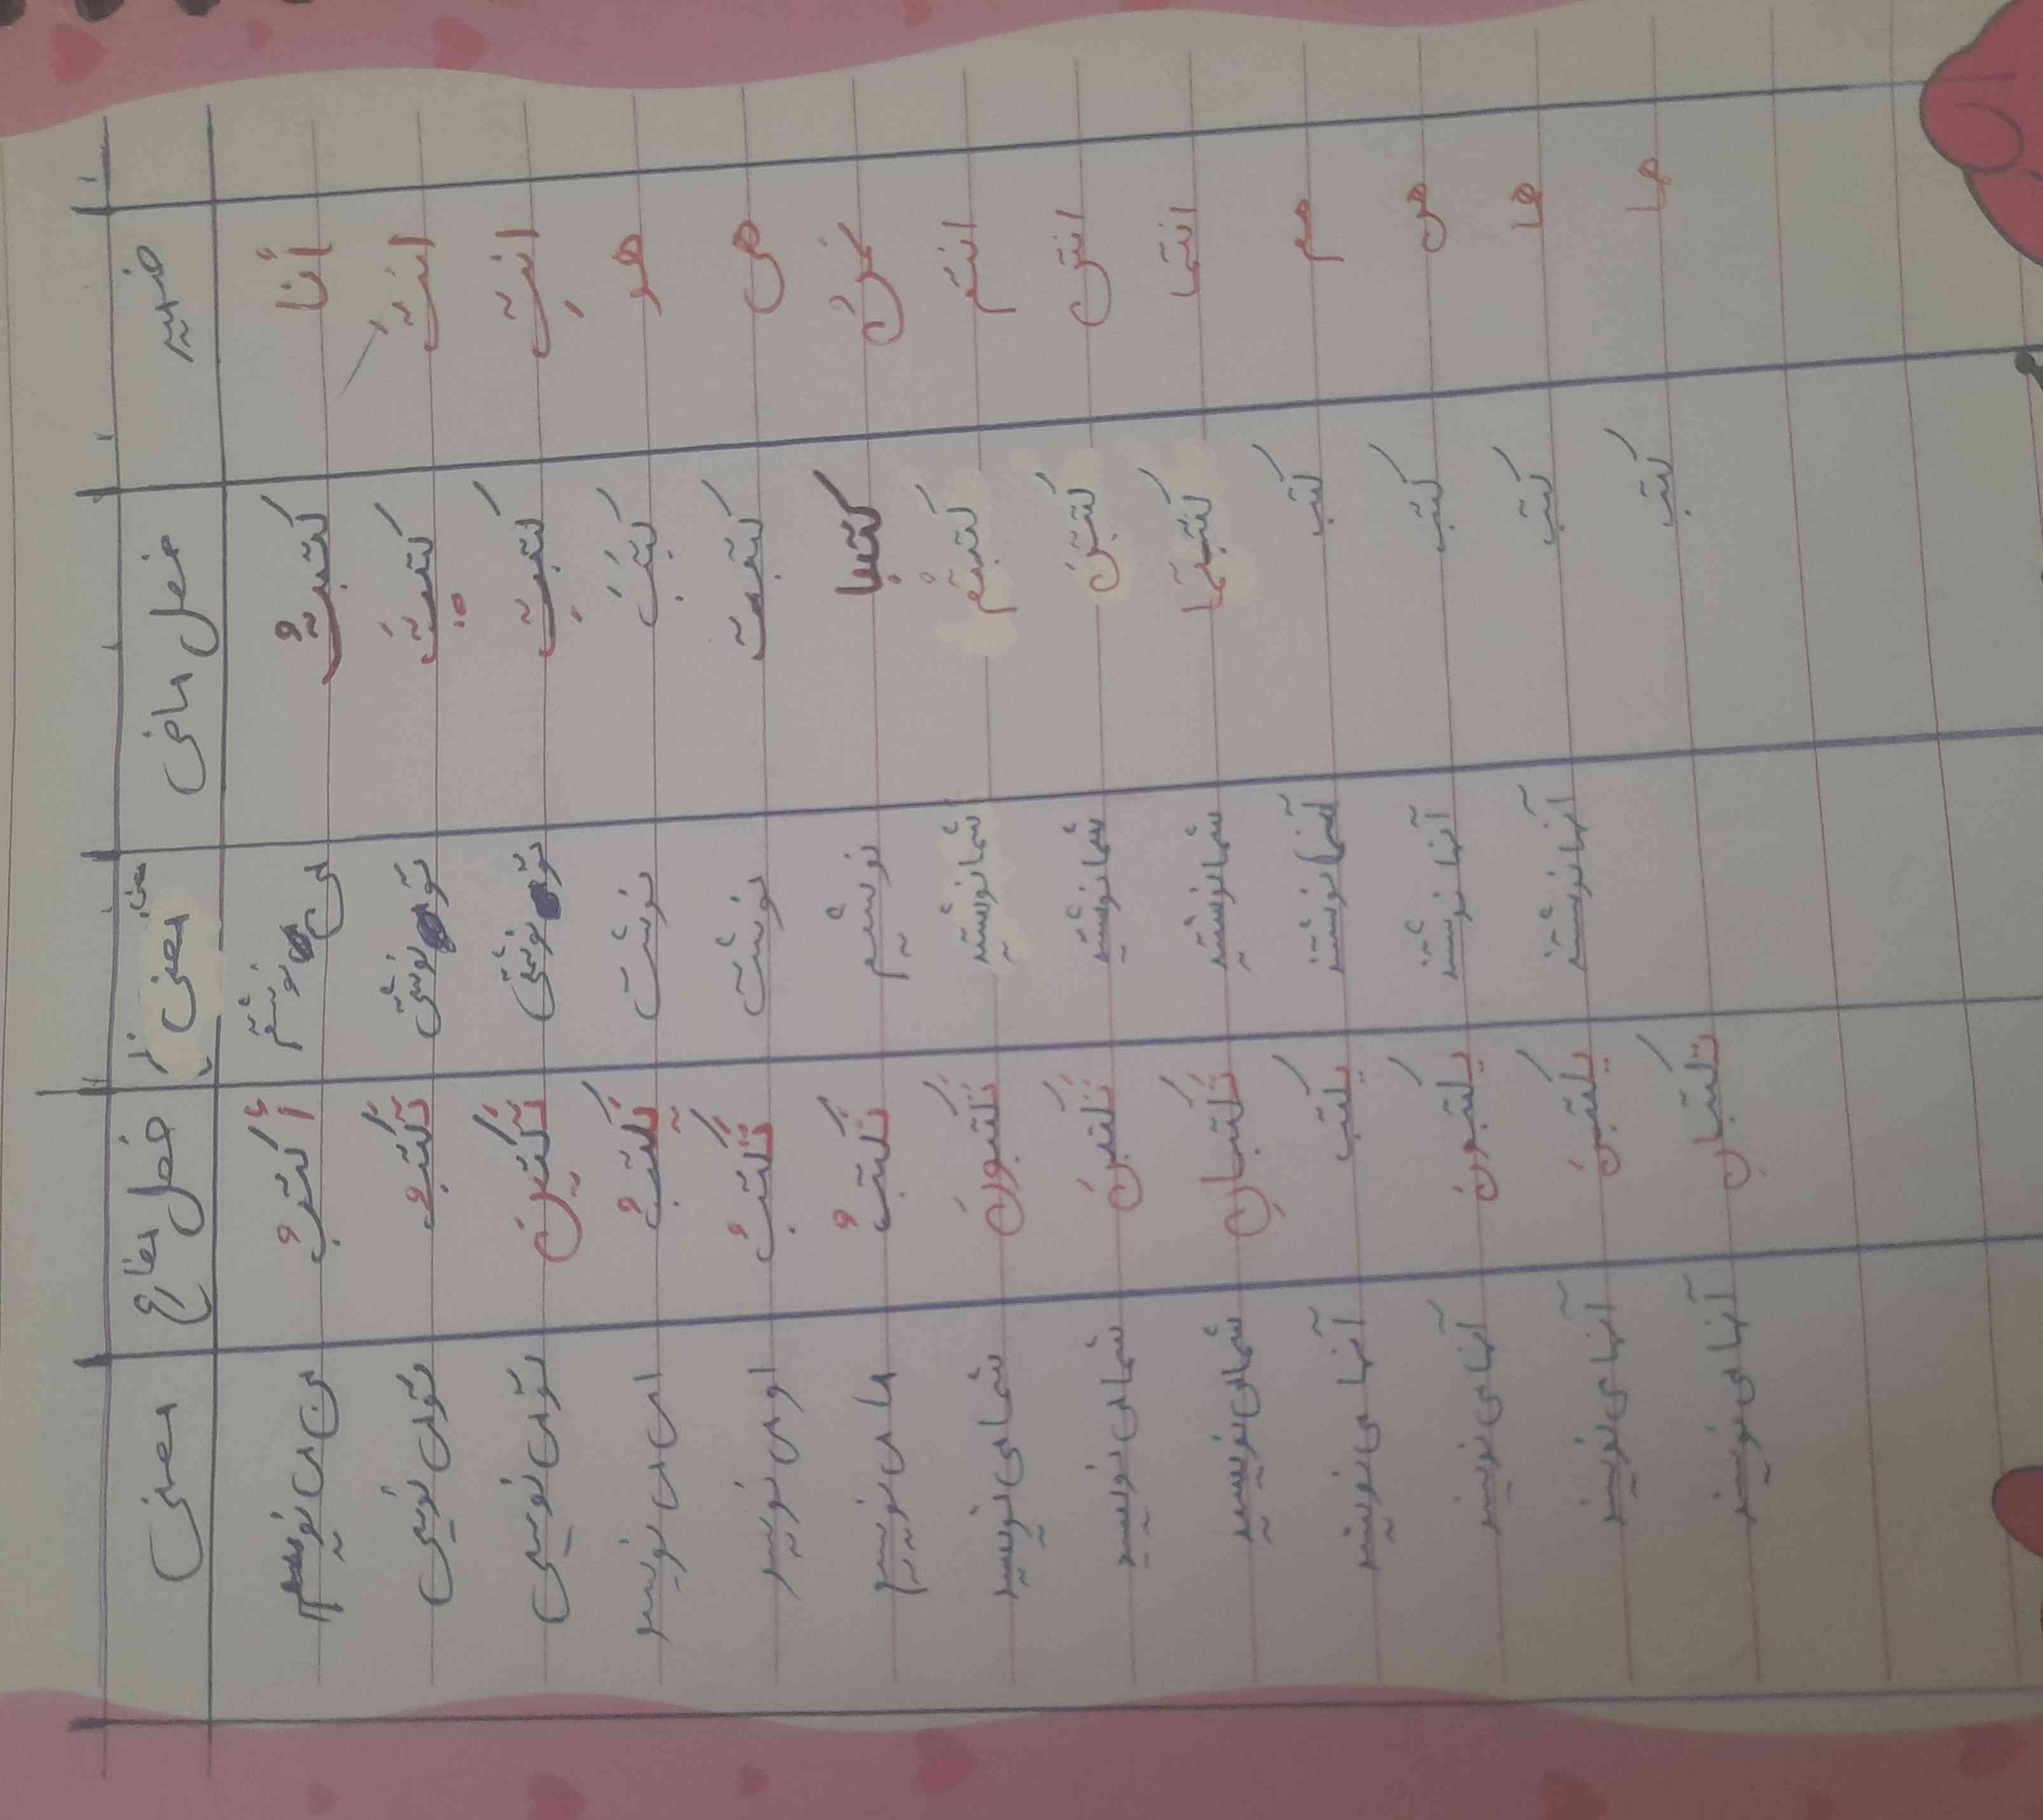 ضمیر فعل ماضی معنی فعل مضارع معنی
أنا کتبتُ من نوشتم أکتبُ من می نویسم
انتَ کتبتَ تو نوشتی تکتبُ تو می نویسی
انتِ کتبتِ تو نوشتی تکتبینَ تو می نویسی
هو کتبَ نوشت یکتبُ او می نویسد
هی کتبت نوشت تکتبُ او می نویسد
نحنُ کتبنا نوشتیم نکتبُ ما می نویسیم
انتم کتبتم شما نوشتید تکتبونَ شما می نویسید
انتن کتبتن شما نوشتید تکتبنَ شما می نویسید
انتما کتبتما شما نوشتید تکتبانِ شما می نویسید
هم کتب آنها نوشتند یکتب آنها می نویسند
هن کتب آنها نوشتند یکتبون آنها می نویسند
هما کتب آنها نوشتند یکتبنَ آنها می نویسند
هما کتب تکتبانِ آنها می نویسند